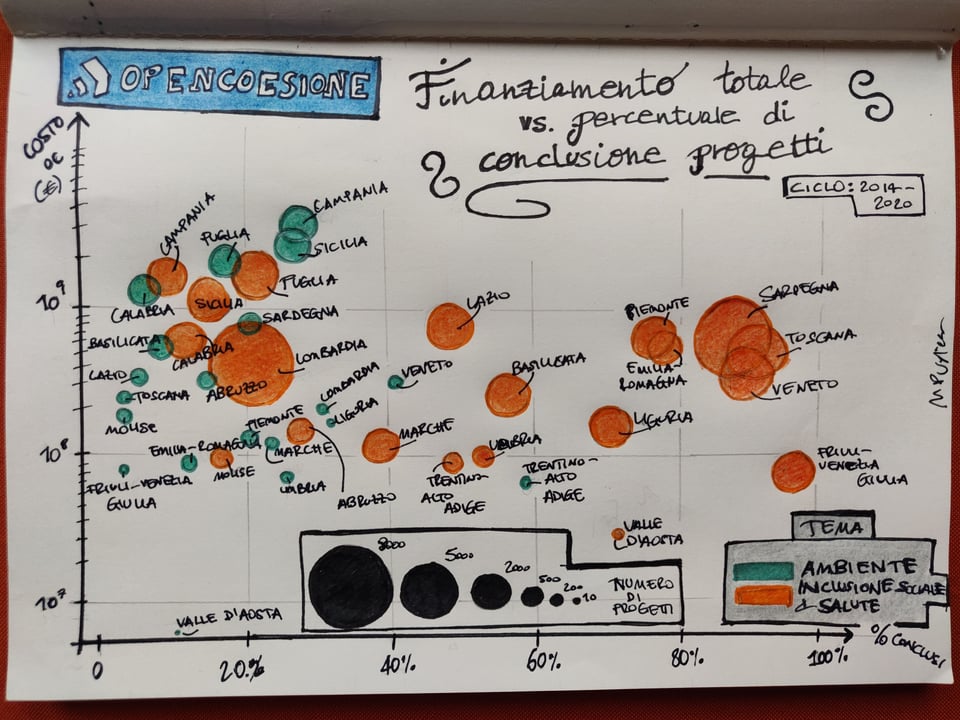 OPENCOESIONE
Finanziamento totale
vs. percentuale di
conclusione progetti
CICLO: 2014-
2020
COSTO
DC
(€)
10⁹
10⁸
10⁷
CAMPANIA
PUGLIA
CAMPANIA
SICILIA
PUGLIA
CALABRIA
SICILIA
SARDEGNA
BASILICATA
CALABRIA
LOMBARDIA
LAZIO
ABRUZZO
TOSCANA
MOLISE
LOMBARDIA
VENETO
LIGURIA
PIEMONTE
EMILIA-ROMAGNA
MARCHE
MOLISE
FRIULI-VENEZIA
GIULIA
UMBRIA
ABRUZZO
LAZIO
BASILICATA
MARCHE
UMBRIA
TRENTINO-
ALTO
ADIGE
TRENTINO-
ALTO
ADIGE
PIEMONTE
EMILIA-
ROMAGNA
LIGURIA
SARDEGNA
TOSCANA
VENETO
FRIULI-
VENEZIA
GIULIA
VALLE
D'AOSTA
VALLE D'AOSTA
8000
5000
2000
500
200
10
NUMERO
DI
PROGETTI
TEMA
AMBIENTE
INCLUSIONE SOCIALE
& SALUTE
0
20%
40%
60%
80%
100%
% CONCLUSI